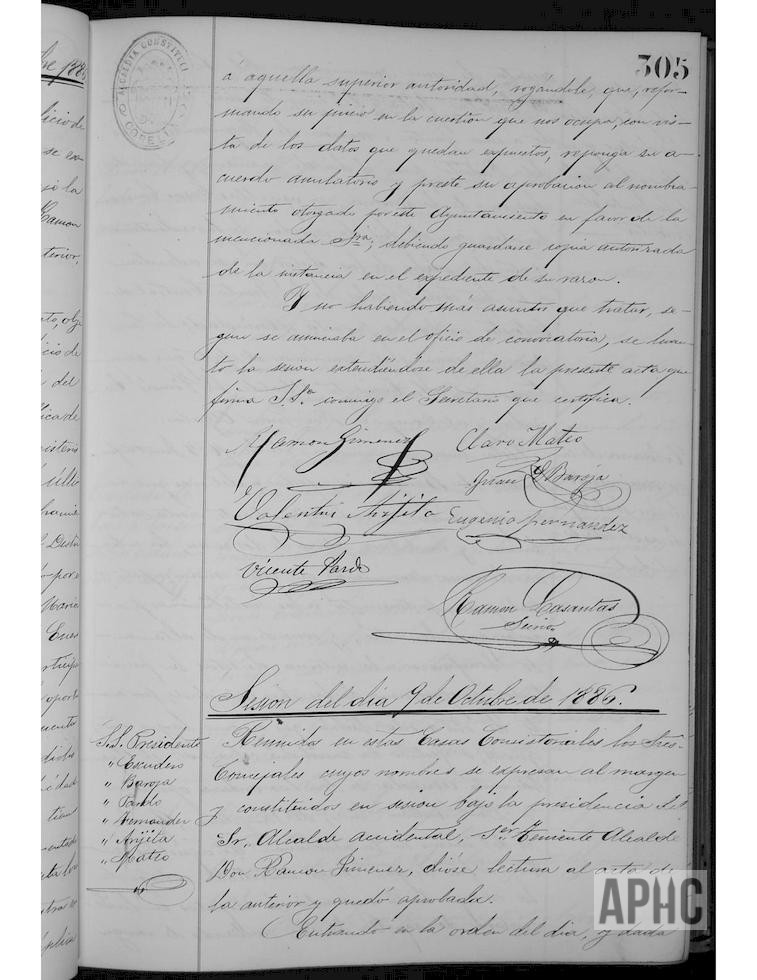 305
ALCALDIA CONSTITUCI
CORELLA
á aquella superior autoridad, rogándole, que, refor-
mando su juicio en la cuestión que nos ocupa, con vis-
ta de los datos que quedan expuestos, reponga su a-
cuerdo anulatorio y preste su aprobación al nombra-
miento otorgado por este Ayuntamiento en favor de la
mencionada Sra; debiendo guardarse copia autorizada
de la instancia en el expediente de su razon.
Y no habiendo más asuntos que tratar, se-
gun se anunciaba en el oficio de convocatoria, se levan-
tó la sesion extendiéndose de ella la presente acta que
firma S.Sa conmigo el Secretario que certifica.
Ramon Gimenez Claro Mateo
Baroja
Valentin Arijita Eugenio Fernandez
Vicente Pardo
Ramon Casantas
Srio
Sesion del dia 9 de Octubre de 1886.
S.S. Presidente
" Escudero
" Baroja
" Pardo
" Fernandez
" Arijita
" Mateo
Reunidos en estas Casas Consistoriales los Sres.
Concejales cuyos nombres se expresan al margen
y constituidos en sesion bajo la presidencia del
Sr. Alcalde accidental, 1er Teniente Alcalde
Don Ramon Jimenez, dióse lectura al acta de
la anterior y quedó aprobada.
Entrando en la orden del dia, y dada
APHC